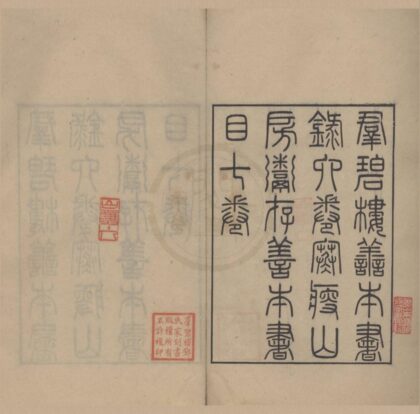 羣碧樓善本書
錄六卷寒瘦山
房鬻存善本書
目七卷